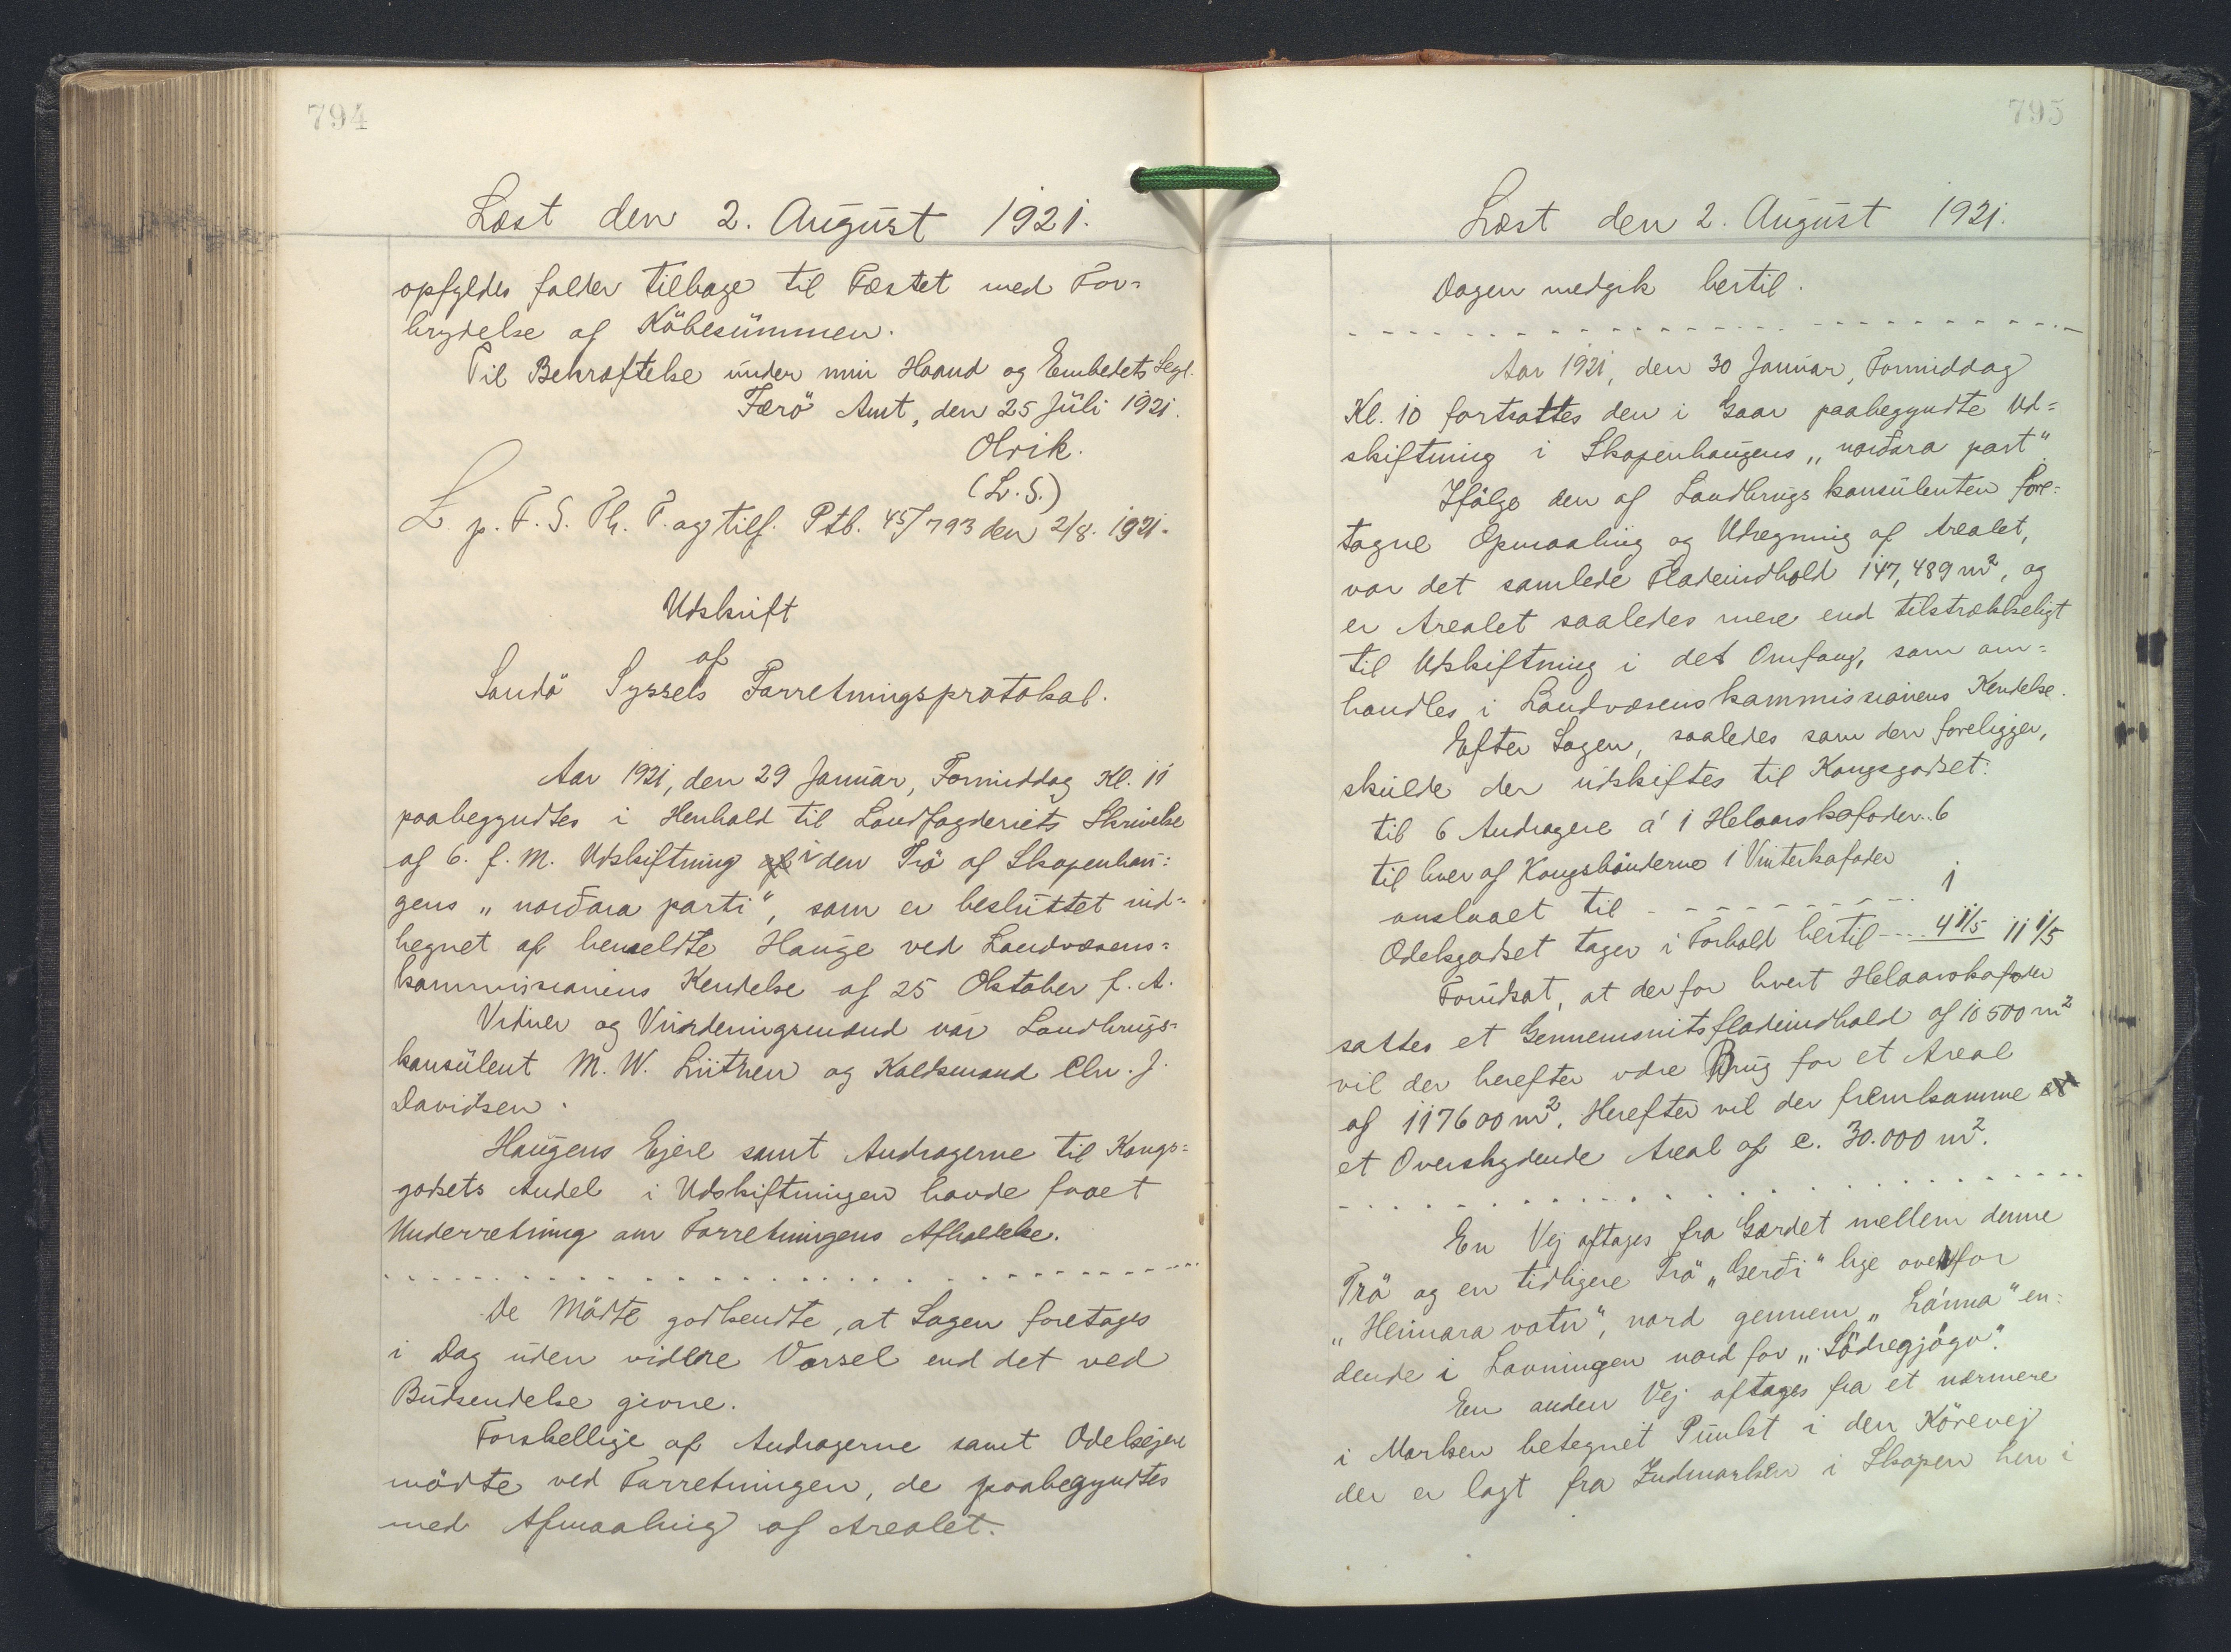 794
Læst den 2. August 1921.
opfyldes falder tilbage til Fæstet med For=
brydelse af Köbesummen.
Til Bekræftelse under min Haand og Embedets Segl.
Færö Amt, den 25 Juli 1921.
Olrik.
(L. S.)
L. p. F. S. Th. T. og tilf. Ptb. 45/793 den 2/8. 1921.
Udskrift
af
Sandö Syssels Forretningsprotokol.
Aar 1921, den 29 Januar, Formiddag Kl. 11
paabegyndtes i Henhold til Landfogderiets Skrivelse
af 6. f. M. Udskiftning af i den Trö af Skopenhau=
gens „norðara parti“, som er besluttet ind=
hegnet af bemeldte Hauge ved Landvæsens=
kommissionens Kendelse af 25 Oktober f. A.
Vidner og Vurderingsmænd var Landbrugs=
konsulent M. W. Lützen og Kaldsmand Chr. J.
Davidsen.
Haugens Ejere samt Andragerne til Kongs=
godsets Andel i Udskiftningen havde faaet
Underretning om Forretningens Afholdelse.
De Mödte godkendte, at Sagen foretages
i Dag uden videre Varsel end det ved
Budsendelse givne.
Forskellige af Andragerne samt Odelsejere
mödte ved Forretningen, de paabegyndtes
med Afmaaling af Arealet.
795
Læst den 2. August 1921.
Dagen medgik hertil.
Aar 1921, den 30 Januar, Formiddag
Kl. 10 fortsattes den i Gaar paabegyndte Ud=
skiftning i Skopenhaugens „norðara part“.
Ifölge den af Landbrugskonsulenten fore=
tagne Opmaaling og Udregning af Arealet,
var det samlede Fladeindhold 147,489 m², og
er Arealet saaledes mere end tilstrækkeligt
til Udskiftning i det Omfang, som om=
handles i Landvæsenskommissionens Kendelse.
Efter Sagen, saaledes som den foreligger,
skulde der udskiftes til Kongsgodset:
til 6 Andragere á 1 Helaarskofoder.. 6
til hver af Kongsbönderne 1 Vinterkofoder
anslaaet til - - - - - - - - - 1
Odelsgodset tager i Forhold hertil - - - 4 1/5 11 1/5
Forudsat, at der for hvert Helaarskofoder
sættes et Gennemsnitsfladeindhold af 10500 m²
vil der herefter være Brug for et Areal
af 117600 m². Herefter vil der fremkomme
et Overskydende Areal af c. 30.000 m².
En Vej aftages fra Gærdet mellem denne
Trö og en tidligere Trö „Gerði“ lige ovenfor
„Heimara vatn“, nord gennem „Lánna“ en=
dende i Lavningen nord for „Södregjógv“.
En anden Vej aftages fra et nærmere
i Marken betegnet Punkt i den Körevej
der er lagt fra Indmarken i Skopen hen i